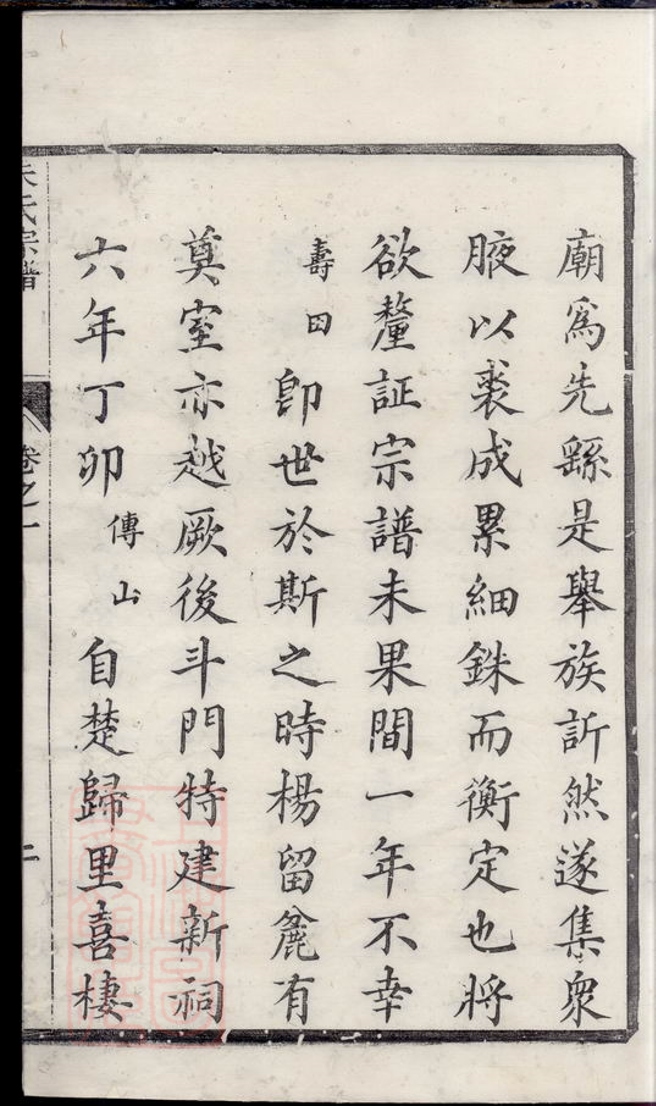 廟爲先繇是舉族訢然遂集衆
腋以裘成累細銖而衡定也將
欲釐証宗譜未果間一年不幸
壽田卽世於斯之時楊留麄有
奠室亦越厥後斗門特建新祠
六年丁卯傳山自楚歸里喜棲
氏宗譜
卷之一
二